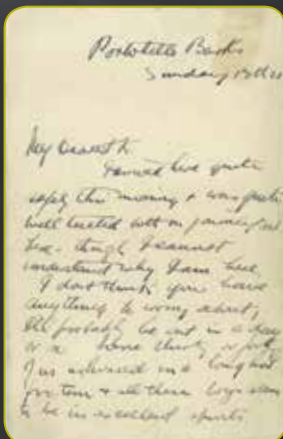 Portobello Barks
Sunday
My dearest
Arrived here quite
safely this morning & was quite
well treated both on journey and
here - though I cannot
understand why I am here.
I don't think you have
anything to worry about,
I'll probably be out in a day
or a
of us in a long
& all these boys seem
to be in excellent spirits